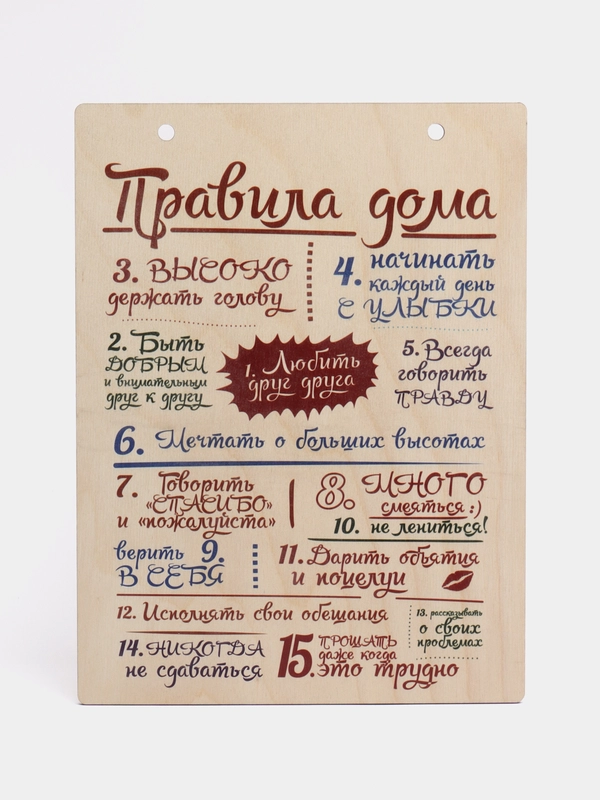 Правила дома
3. ВЫСОКО
держать голову
4. начинать
каждый день
С УЛЫБКИ
2. Быть
ДОБРЫМ
и внимательным
друг к другу
1. Любить
друг друга
5. Всегда
говорить
ПРАВДУ
6. Мечтать о больших высотах
7. Говорить
«СПАСИБО»
и «пожалуйста»
8. МНОГО
смеяться :)
10. не лениться!
верить 9.
В СЕБЯ
11. Дарить объятия
и поцелуи
12. Исполнять свои обещания
13. рассказывать
о своих
проблемах
14. НИКОГДА
не сдаваться
15. ПРОЩАТЬ
даже когда
это трудно